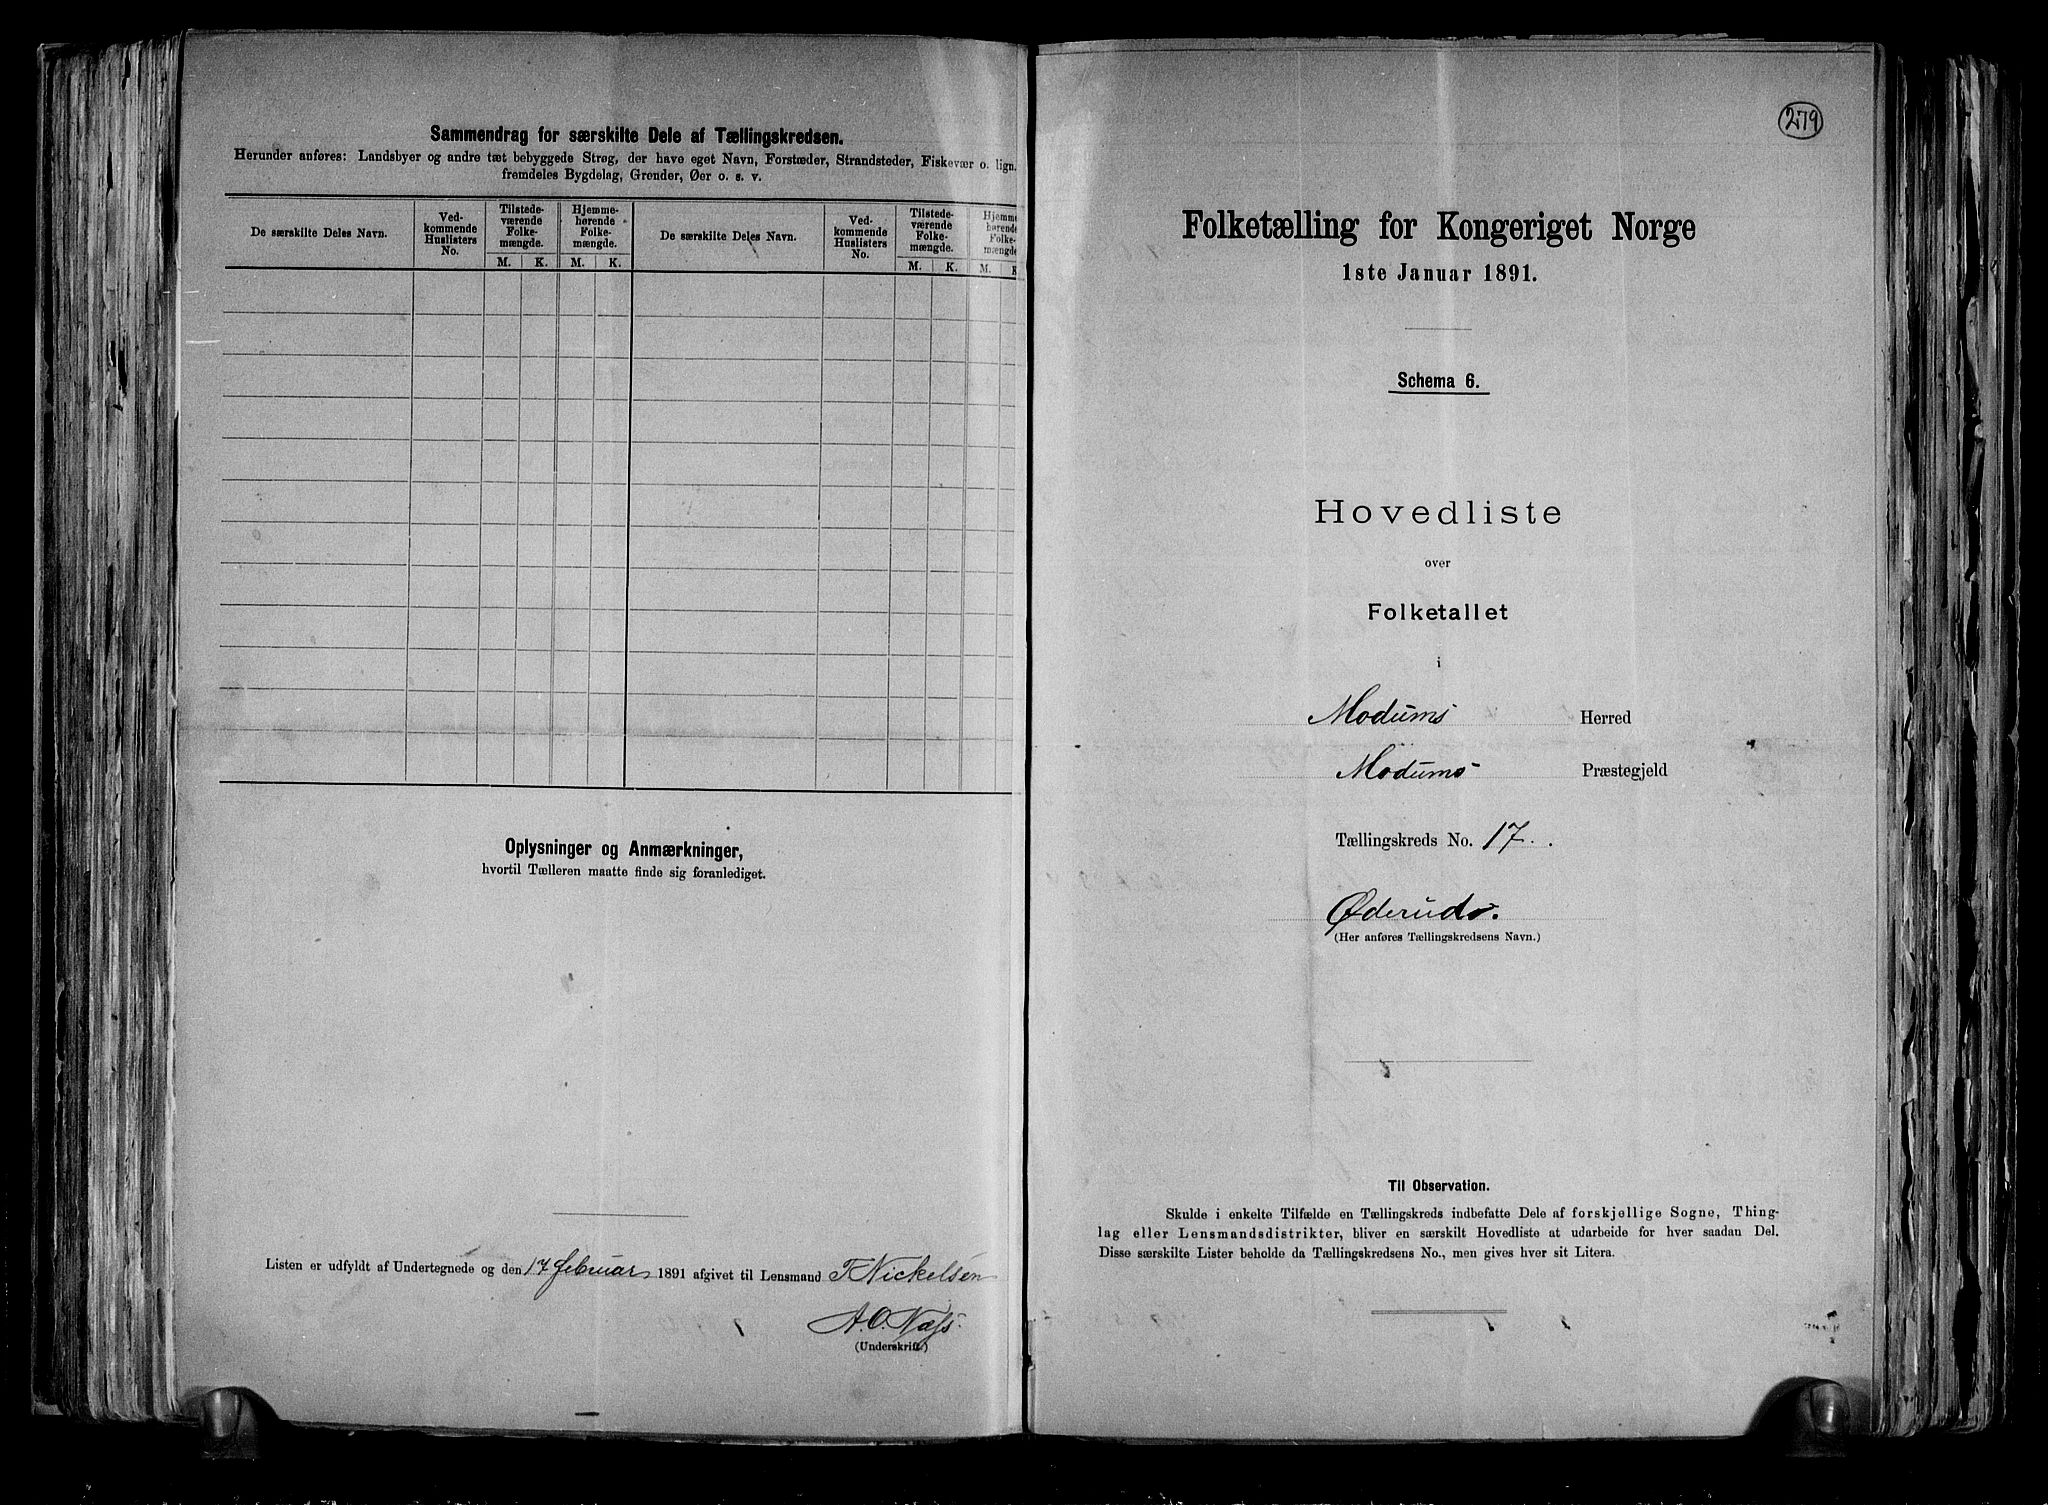 Sammendrag for særskilte Dele af Tællingskredsen.
Herunder anføres: Landsbyer og andre tæt bebyggede Strøg, der have eget Navn, Forstæder, Strandsteder, Fiskevær o. lign.
fremdeles Bygdelag, Grender, Øer o. s. v.
De særskilte Deles Navn.
Ved-
kommende
Huslisters
No.
Tilstede-
værende
Folke-
mængde.
Hjemme-
hørende
Folke-
mængde.
De særskilte Deles Navn.
Ved-
kommende
Huslisters
No.
Tilstede-
værende
Folke-
mængde.
Hjemme
hørende
Folke-
mængde
M. K. M. K. M. K. M. K
Oplysninger og Anmærkninger,
hvortil Tælleren maatte finde sig foranlediget.
Listen er udfyldt af Undertegnede og den 17 februar 1891 afgivet til Lensmand T Nickelsen
A. O. Næss.
(Underskrift.)
279
Folketælling for Kongeriget Norge
1ste Januar 1891.
Schema 6.
Hovedliste
over
Folketallet
i
Modums Herred
Modums Præstegjeld
Tællingskreds No. 17.
Øderuds.
(Her anføres Tællingskredsens Navn.)
Til Observation.
Skulde i enkelte Tilfælde en Tællingskreds indbefatte Dele af forskjellige Sogne, Thing-
lag eller Lensmandsdistrikter, bliver en særskilt Hovedliste at udarbeide for hver saadan Del.
Disse særskilte Lister beholde da Tællingskredsens No., men gives hver sit Litera.